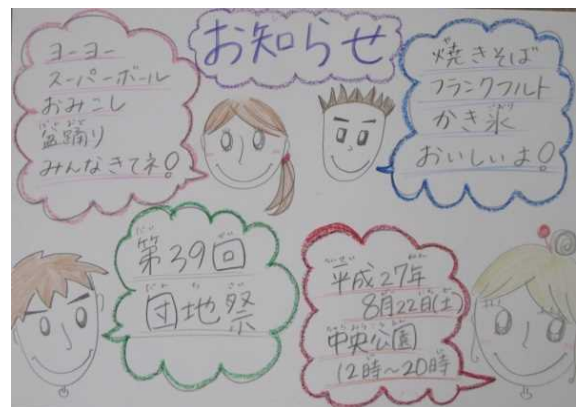 お知らせ
ヨーヨー
スーパーボール
おみこし
盆踊り
みんなきてネ!
焼きそば
フランクフルト
かき氷
おいしいよ!
第39回
団地祭
平成27年
8月22日(土)
中央公園
12時~20時